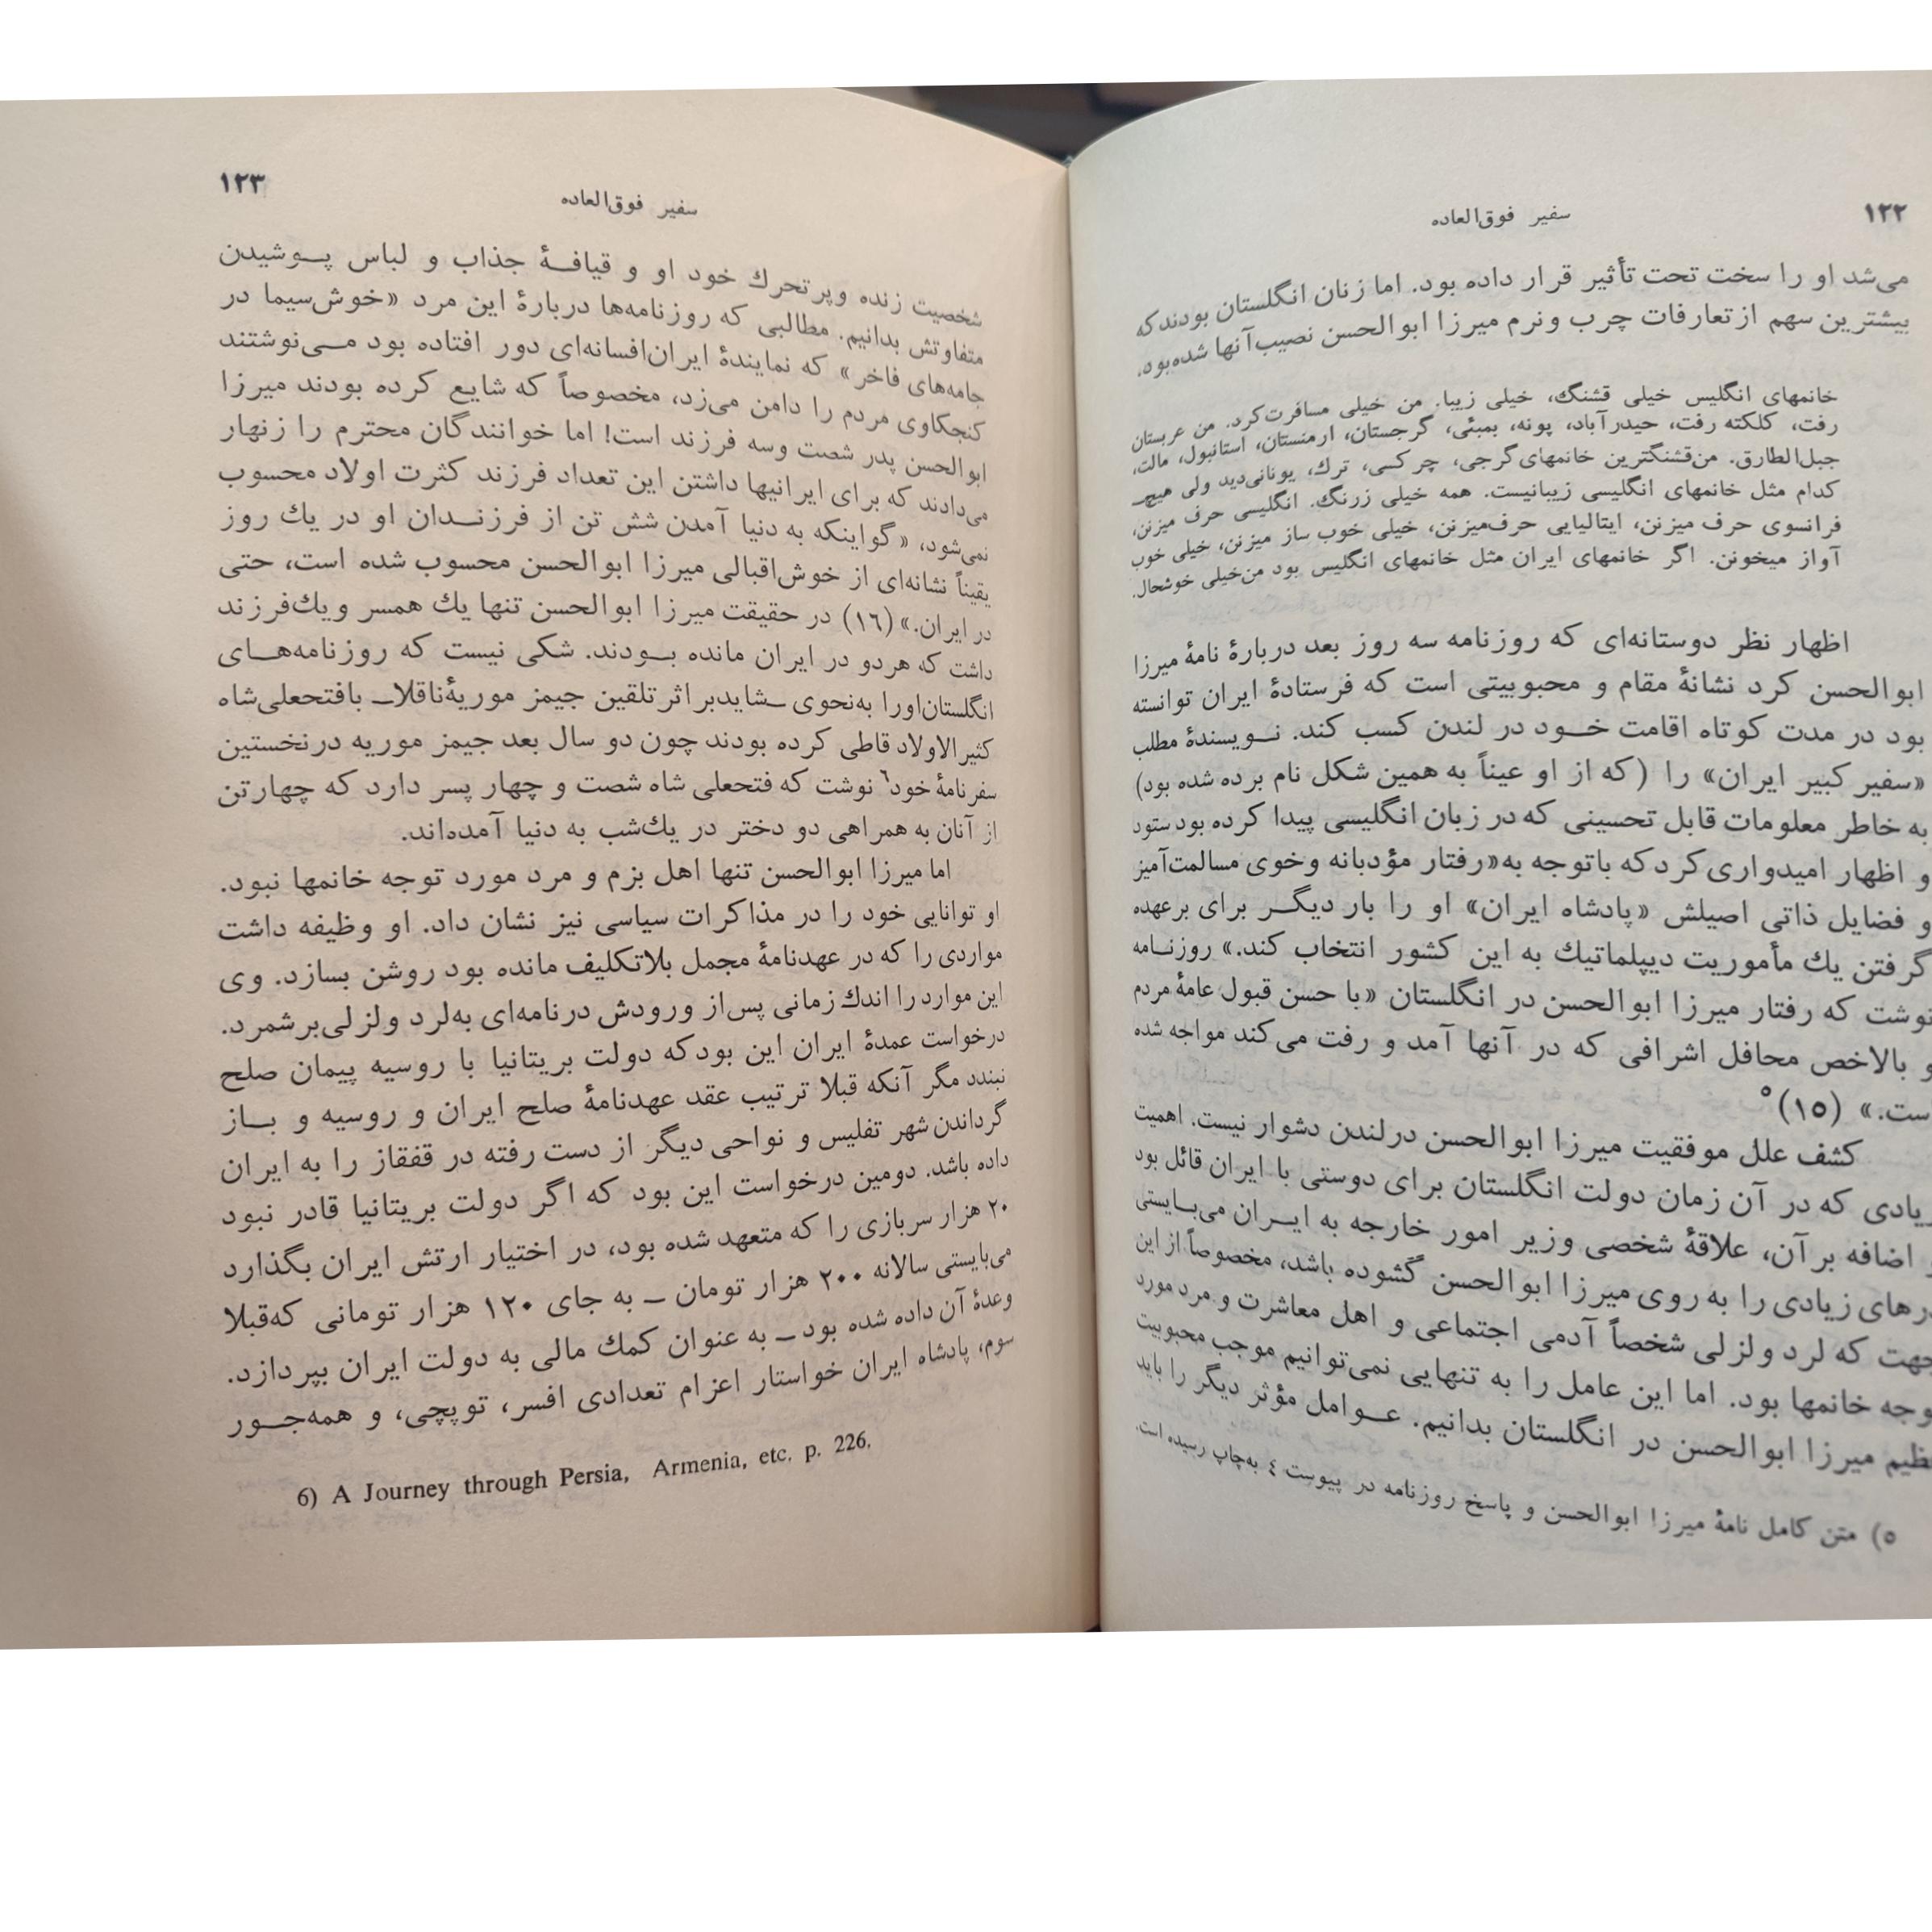 ۱۲۲
سفیر فوق‌العاده
می‌شد او را سخت تحت تأثیر قرار داده بود. اما زنان انگلستان بودند که
بیشترین سهم از تعارفات چرب و نرم میرزا ابوالحسن نصیب آنها شده بود.
خانمهای انگلیس خیلی قشنگ، خیلی زیبا. من خیلی مسافرت کرد. من عربستان
رفت، کلکته رفت، حیدرآباد، پونه، بمبئی، گرجستان، ارمنستان، استانبول، مالت،
جبل‌الطارق. من قشنگترین خانمهای گرجی، چرکسی، ترک، یونانی دید ولی هیچ‌ـ
کدام مثل خانمهای انگلیسی زیبا نیست. همه خیلی زرنگ. انگلیسی حرف میزنن،
فرانسوی حرف میزنن، ایتالیایی حرف میزنن، خیلی خوب ساز میزنن، خیلی خوب
آواز میخونن. اگر خانمهای ایران مثل خانمهای انگلیس بود من خیلی خوشحال.
اظهار نظر دوستانه‌ای که روزنامه سه روز بعد دربارهٔ نامهٔ میرزا
ابوالحسن کرد نشانهٔ مقام و محبوبیتی است که فرستادهٔ ایران توانسته
بود در مدت کوتاه اقامت خـود در لندن کسب کند. نـویسندهٔ مطلب
«سفیر کبیر ایران» را (که از او عیناً به همین شکل نام برده شده بود)
به خاطر معلومات قابل تحسینی که در زبان انگلیسی پیدا کرده بود ستود
و اظهار امیدواری کرد که باتوجه به «رفتار مؤدبانه و خوی مسالمت‌آمیز
و فضایل ذاتی اصیلش «پادشاه ایران» او را بار دیگـر برای برعهده
گرفتن یک مأموریت دیپلماتیک به این کشور انتخاب کند.» روزنـامه
نوشت که رفتار میرزا ابوالحسن در انگلستان «با حسن قبول عامهٔ مردم
و بالاخص محافل اشرافی که در آنها آمد و رفت می‌کند مواجه شده
ست.» (۱۵)⁵
کشف علل موفقیت میرزا ابوالحسن در لندن دشوار نیست. اهمیت
زیادی که در آن زمان دولت انگلستان برای دوستی با ایران قائل بود
اضافه بر آن، علاقهٔ شخصی وزیر امور خارجه به ایـران می‌بـایستی
درهای زیادی را به روی میرزا ابوالحسن گشوده باشد، مخصوصاً از این
جهت که لرد ولزلی شخصاً آدمی اجتماعی و اهل معاشرت و مرد مورد
وجه خانمها بود. اما این عامل را به تنهایی نمی‌توانیم موجب محبوبیت
ظیم میرزا ابوالحسن در انگلستان بدانیم. عـوامل مؤثر دیگر را باید
۵) متن کامل نامهٔ میرزا ابوالحسن و پاسخ روزنامه در پیوست ٤ به‌چاپ رسیده است.
۱۲۳
سفیر فوق‌العاده
شخصیت زنده و پرتحرک خود او و قیافـهٔ جذاب و لباس پـوشیدن
متفاوتش بدانیم. مطالبی که روزنامه‌ها دربارهٔ این مرد «خوش‌سیما در
جامه‌های فاخر» که نمایندهٔ ایران افسانه‌ای دور افتاده بود مـی‌نوشتند
کنجکاوی مردم را دامن می‌زد، مخصوصاً که شایع کرده بودند میرزا
ابوالحسن پدر شصت وسه فرزند است! اما خوانندگان محترم را زنهار
می‌دادند که برای ایرانیها داشتن این تعداد فرزند کثرت اولاد محسوب
نمی‌شود، «گواینکه به دنیا آمدن شش تن از فرزنـدان او در یک روز
یقیناً نشانه‌ای از خوش‌اقبالی میرزا ابوالحسن محسوب شده است، حتی
در ایران.» (۱٦) در حقیقت میرزا ابوالحسن تنها یک همسر و یک فرزند
داشت که هردو در ایران مانده بـودند. شکی نیست که روزنامه‌هـای
انگلستان اورا به‌نحوی ــ شاید براثر تلقین جیمز موریهٔ ناقلا ــ بافتحعلی‌شاه
کثیرالاولاد قاطی کرده بودند چون دو سال بعد جیمز موریه درنخستین
سفرنامهٔ خود⁶ نوشت که فتحعلی شاه شصت و چهار پسر دارد که چهارتن
از آنان به همراهی دو دختر در یک‌شب به دنیا آمده‌اند.
اما میرزا ابوالحسن تنها اهل بزم و مرد مورد توجه خانمها نبود.
او توانایی خود را در مذاکرات سیاسی نیز نشان داد. او وظیفه داشت
مواردی را که در عهدنامهٔ مجمل بلاتکلیف مانده بود روشن بسازد. وی
این موارد را اندک زمانی پس‌از ورودش درنامه‌ای به‌لرد ولزلی برشمرد.
درخواست عمدهٔ ایران این بود که دولت بریتانیا با روسیه پیمان صلح
نبندد مگر آنکه قبلا ترتیب عقد عهدنامهٔ صلح ایران و روسیه و بـاز
گرداندن شهر تفلیس و نواحی دیگر از دست رفته در قفقاز را به ایران
داده باشد. دومین درخواست این بود که اگر دولت بریتانیا قادر نبود
۲۰ هزار سربازی را که متعهد شده بود، در اختیار ارتش ایران بگذارد
می‌بایستی سالانه ۲۰۰ هزار تومان ــ به جای ۱۲۰ هزار تومانی که‌قبلا
وعدهٔ آن داده شده بود ــ به عنوان کمک مالی به دولت ایران بپردازد.
سوم، پادشاه ایران خواستار اعزام تعدادی افسر، توپچی، و همه‌جـور
6) A Journey through Persia, Armenia, etc. p. 226.